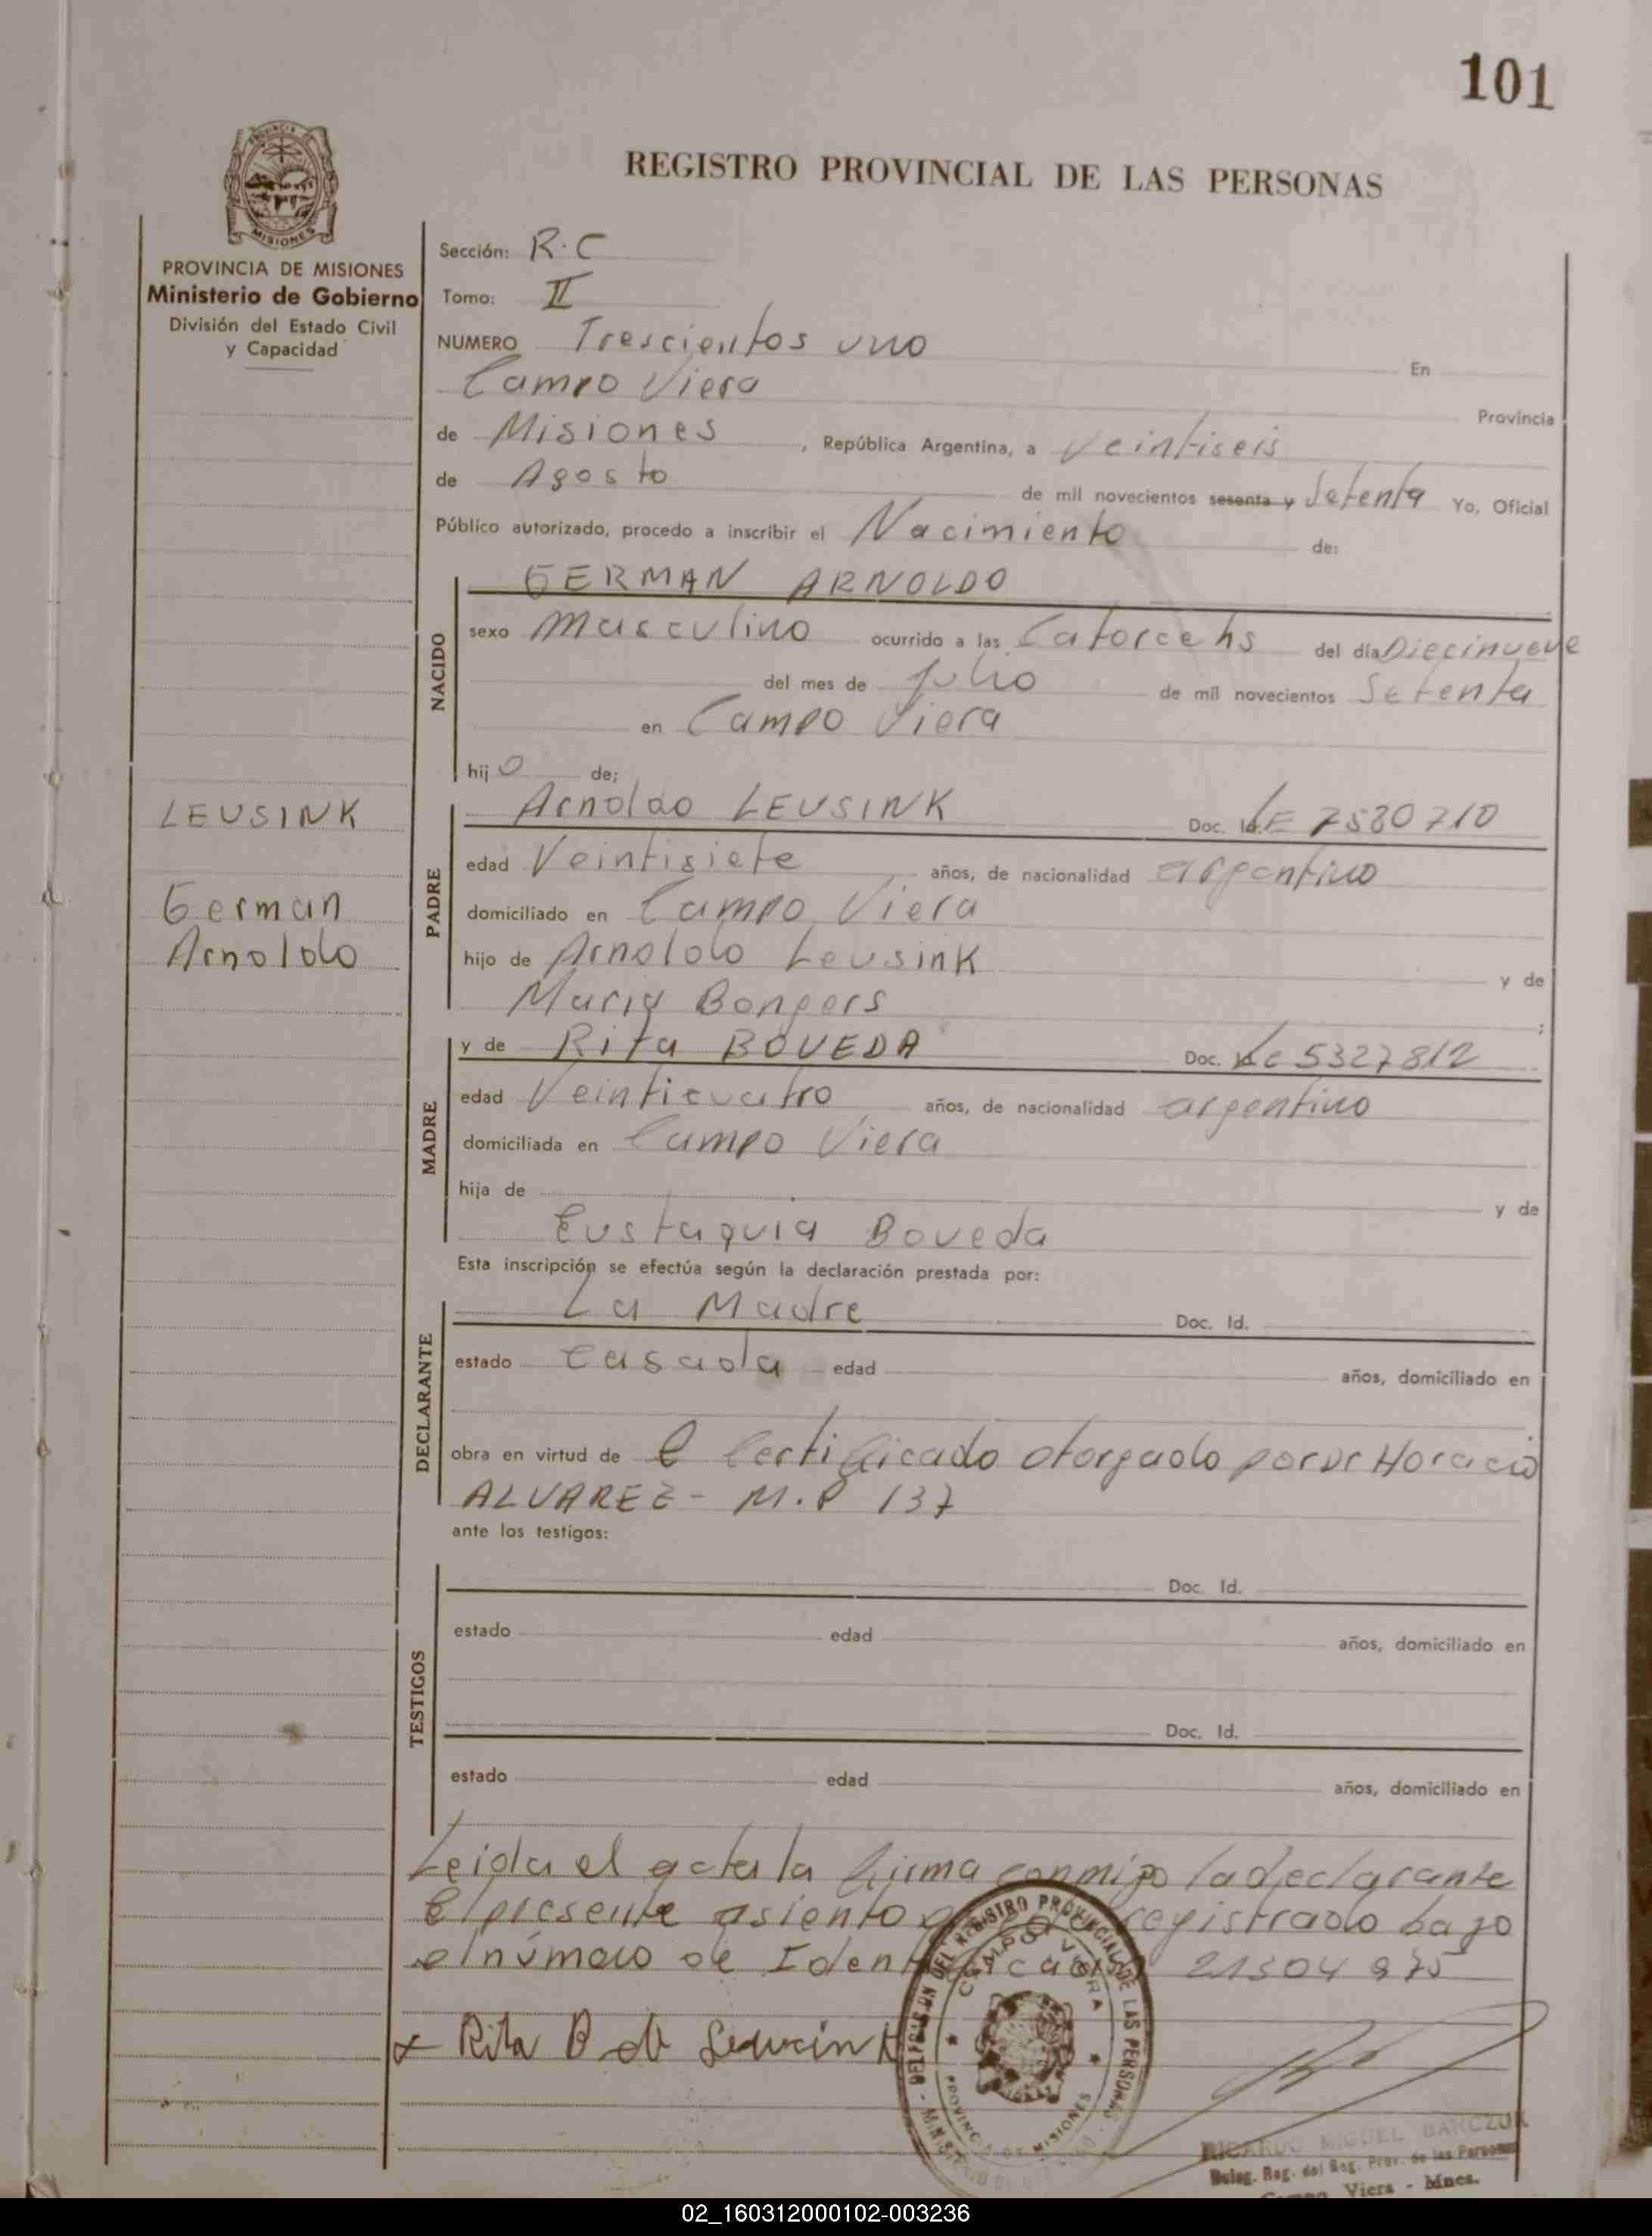 101
REGISTRO PROVINCIAL DE LAS PERSONAS
PROVINCIA DE MISIONES
Ministerio de Gobierno
División del Estado Civil
y Capacidad
Sección: R.C
Tomo: II
NUMERO Trescientos uno En
Campo Viera Provincia
de Misiones, República Argentina, a Veintiseis
de Agosto de mil novecientos sesenta y Setenta Yo, Oficial
Público autorizado, procedo a inscribir el Nacimiento de:
NACIDO
GERMAN ARNOLDO
sexo Masculino ocurrido a las Catorce hs del día Diecinueve
del mes de Julio de mil novecientos Setenta
en Campo Viera
hijo de;
LEUSINK
German
Arnoldo
PADRE
Arnoldo LEUSINK Doc. Id. LE 7580710
edad Veintisiete años, de nacionalidad argentino
domiciliado en Campo Viera
hijo de Arnoldo Leusink y de
Maria Bongers ;
MADRE
y de Rita BOVEDA Doc. Id. LC 5327812
edad Veinticuatro años, de nacionalidad argentino
domiciliada en Campo Viera
hija de y de
Eustaquia Boveda
Esta inscripción se efectúa según la declaración prestada por:
DECLARANTE
La Madre Doc. Id.
estado Casada edad años, domiciliado en
obra en virtud de el Certificado otorgado por Dr Horacio
ALVAREZ - M.P 137
ante los testigos:
TESTIGOS
Doc. Id.
estado edad años, domiciliado en
Doc. Id.
estado edad años, domiciliado en
Leida el acta la firma conmigo la declarante
El presente asiento registrado bajo
el número de Identificación 21304975
x Rita B de Leucink
DELEGACION DEL REGISTRO PROVINCIAL DE LAS PERSONAS
CAMPO VIERA
PROVINCIA DE MISIONES
RICARDO MIGUEL BARCZUK
Deleg. Reg. del Reg. Prov. de las Personas
Campo Viera - Mnes.
02_160312000102-003236